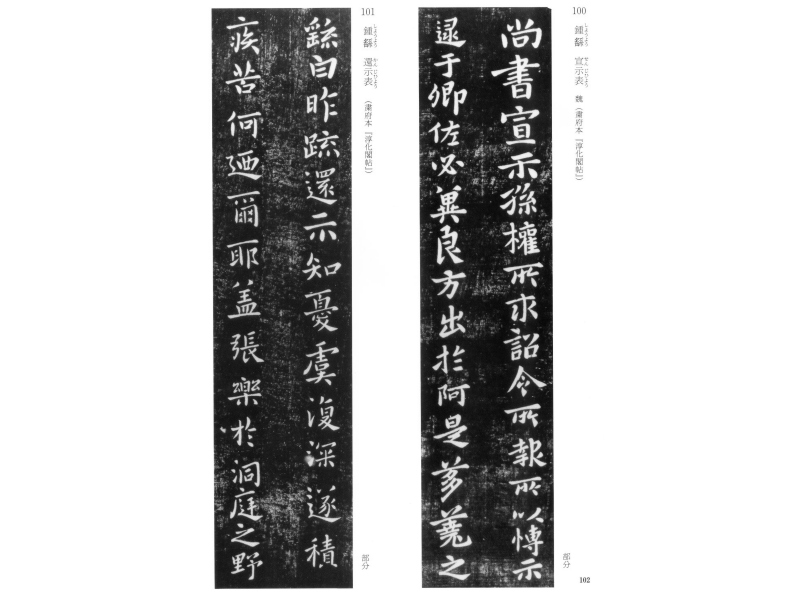 100
鍾繇 宣示表 魏 (肅府本『淳化閣帖』)
部分
尚書宣示孫權所求詔令所報所以愽示
逮于卿佐必冀良方出於阿是芻蕘之
101
鍾繇 還示表 (肅府本『淳化閣帖』)
部分
繇白昨疏還示知憂虞復深遂積
疾苦何廼爾耶盖張樂於洞庭之野
102